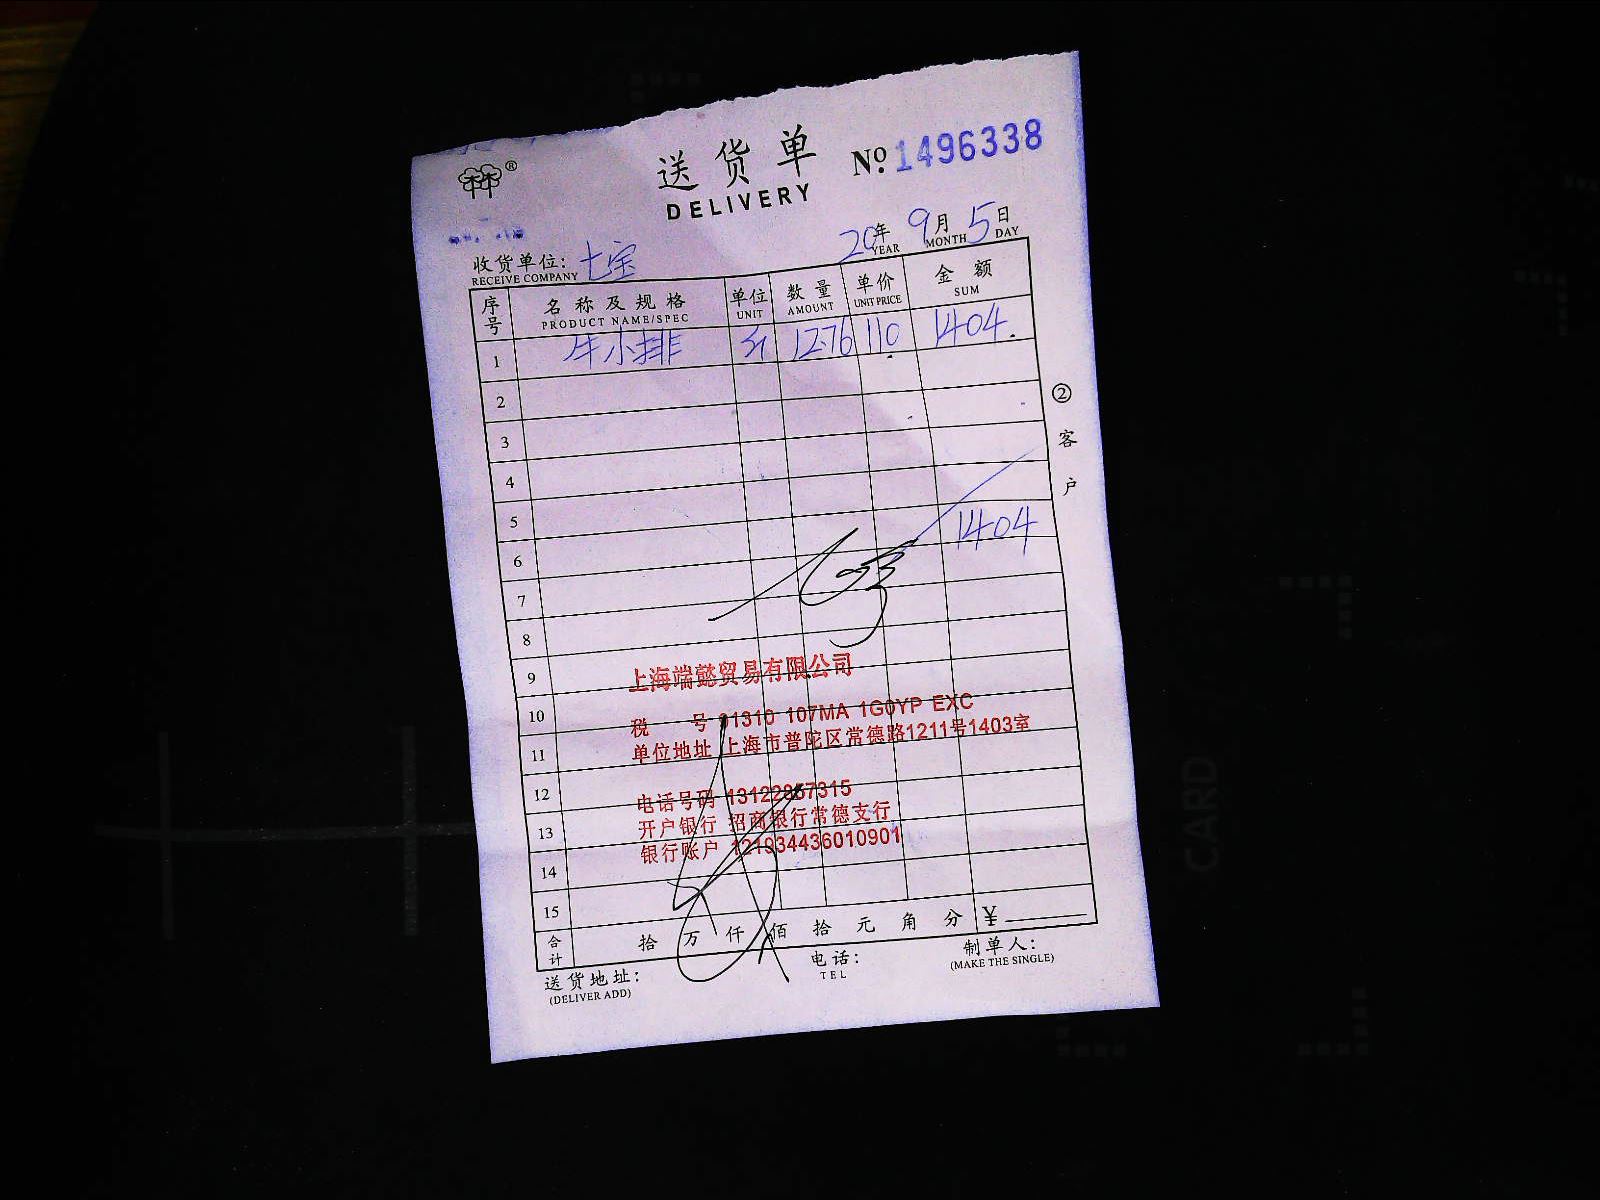 ®
送货单
DELIVERY
No. 1496338
20年 9月 5日
YEAR MONTH DAY
收货单位: 七宝
RECEIVE COMPANY
序号 名称及规格 单位 数量 单价 金额
PRODUCT NAME/SPEC UNIT AMOUNT UNIT PRICE SUM
1 牛小排 斤 12.76 110 1404.
2
3
4
5
1404
6
7
8
9
上海端懿贸易有限公司
10
税 号 91310 107MA 1G0YP EXC
11
单位地址 上海市普陀区常德路1211号1403室
12
电话号码 13122867315
13
开户银行 招商银行常德支行
银行账户 121934436010901
14
15
合计 拾 万 仟 佰 拾 元 角 分 ¥
②客户
送货地址: 电话: 制单人:
(DELIVER ADD) TEL (MAKE THE SINGLE)
CARD